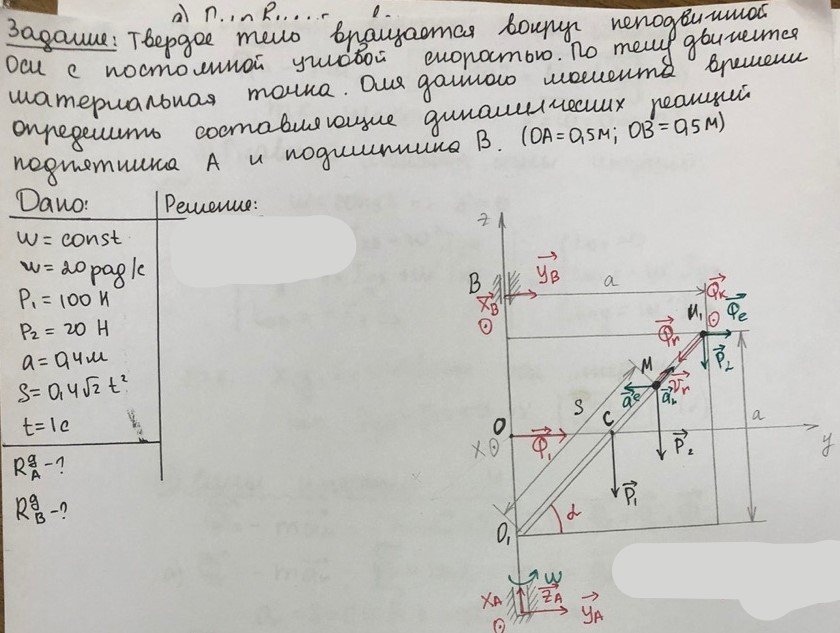 Задание: Твердое тело вращается вокруг неподвижной
оси с постоянной угловой скоростью. По телу движется
материальная точка. Для данного момента времени
определить составляющие динамических реакций
подпятника A и подшипника B. (OA=0,5м; OB=0,5м)
Дано:
Решение:
ω = const
ω = 20 рад/с
P₁ = 100 Н
P₂ = 20 Н
a = 0,4 м
S = 0,4√2 t²
t = 1 с
R_A^g - ?
R_B^g - ?
z
B
Y_B
X_B
a
Φ_k
M₁
Φ_e
Φ_r
P₂
M
V_r
a_e
a_r
S
C
O
Φ₁
X
P₂
a
y
P₁
O₁
α
ω
X_A
Z_A
Y_A